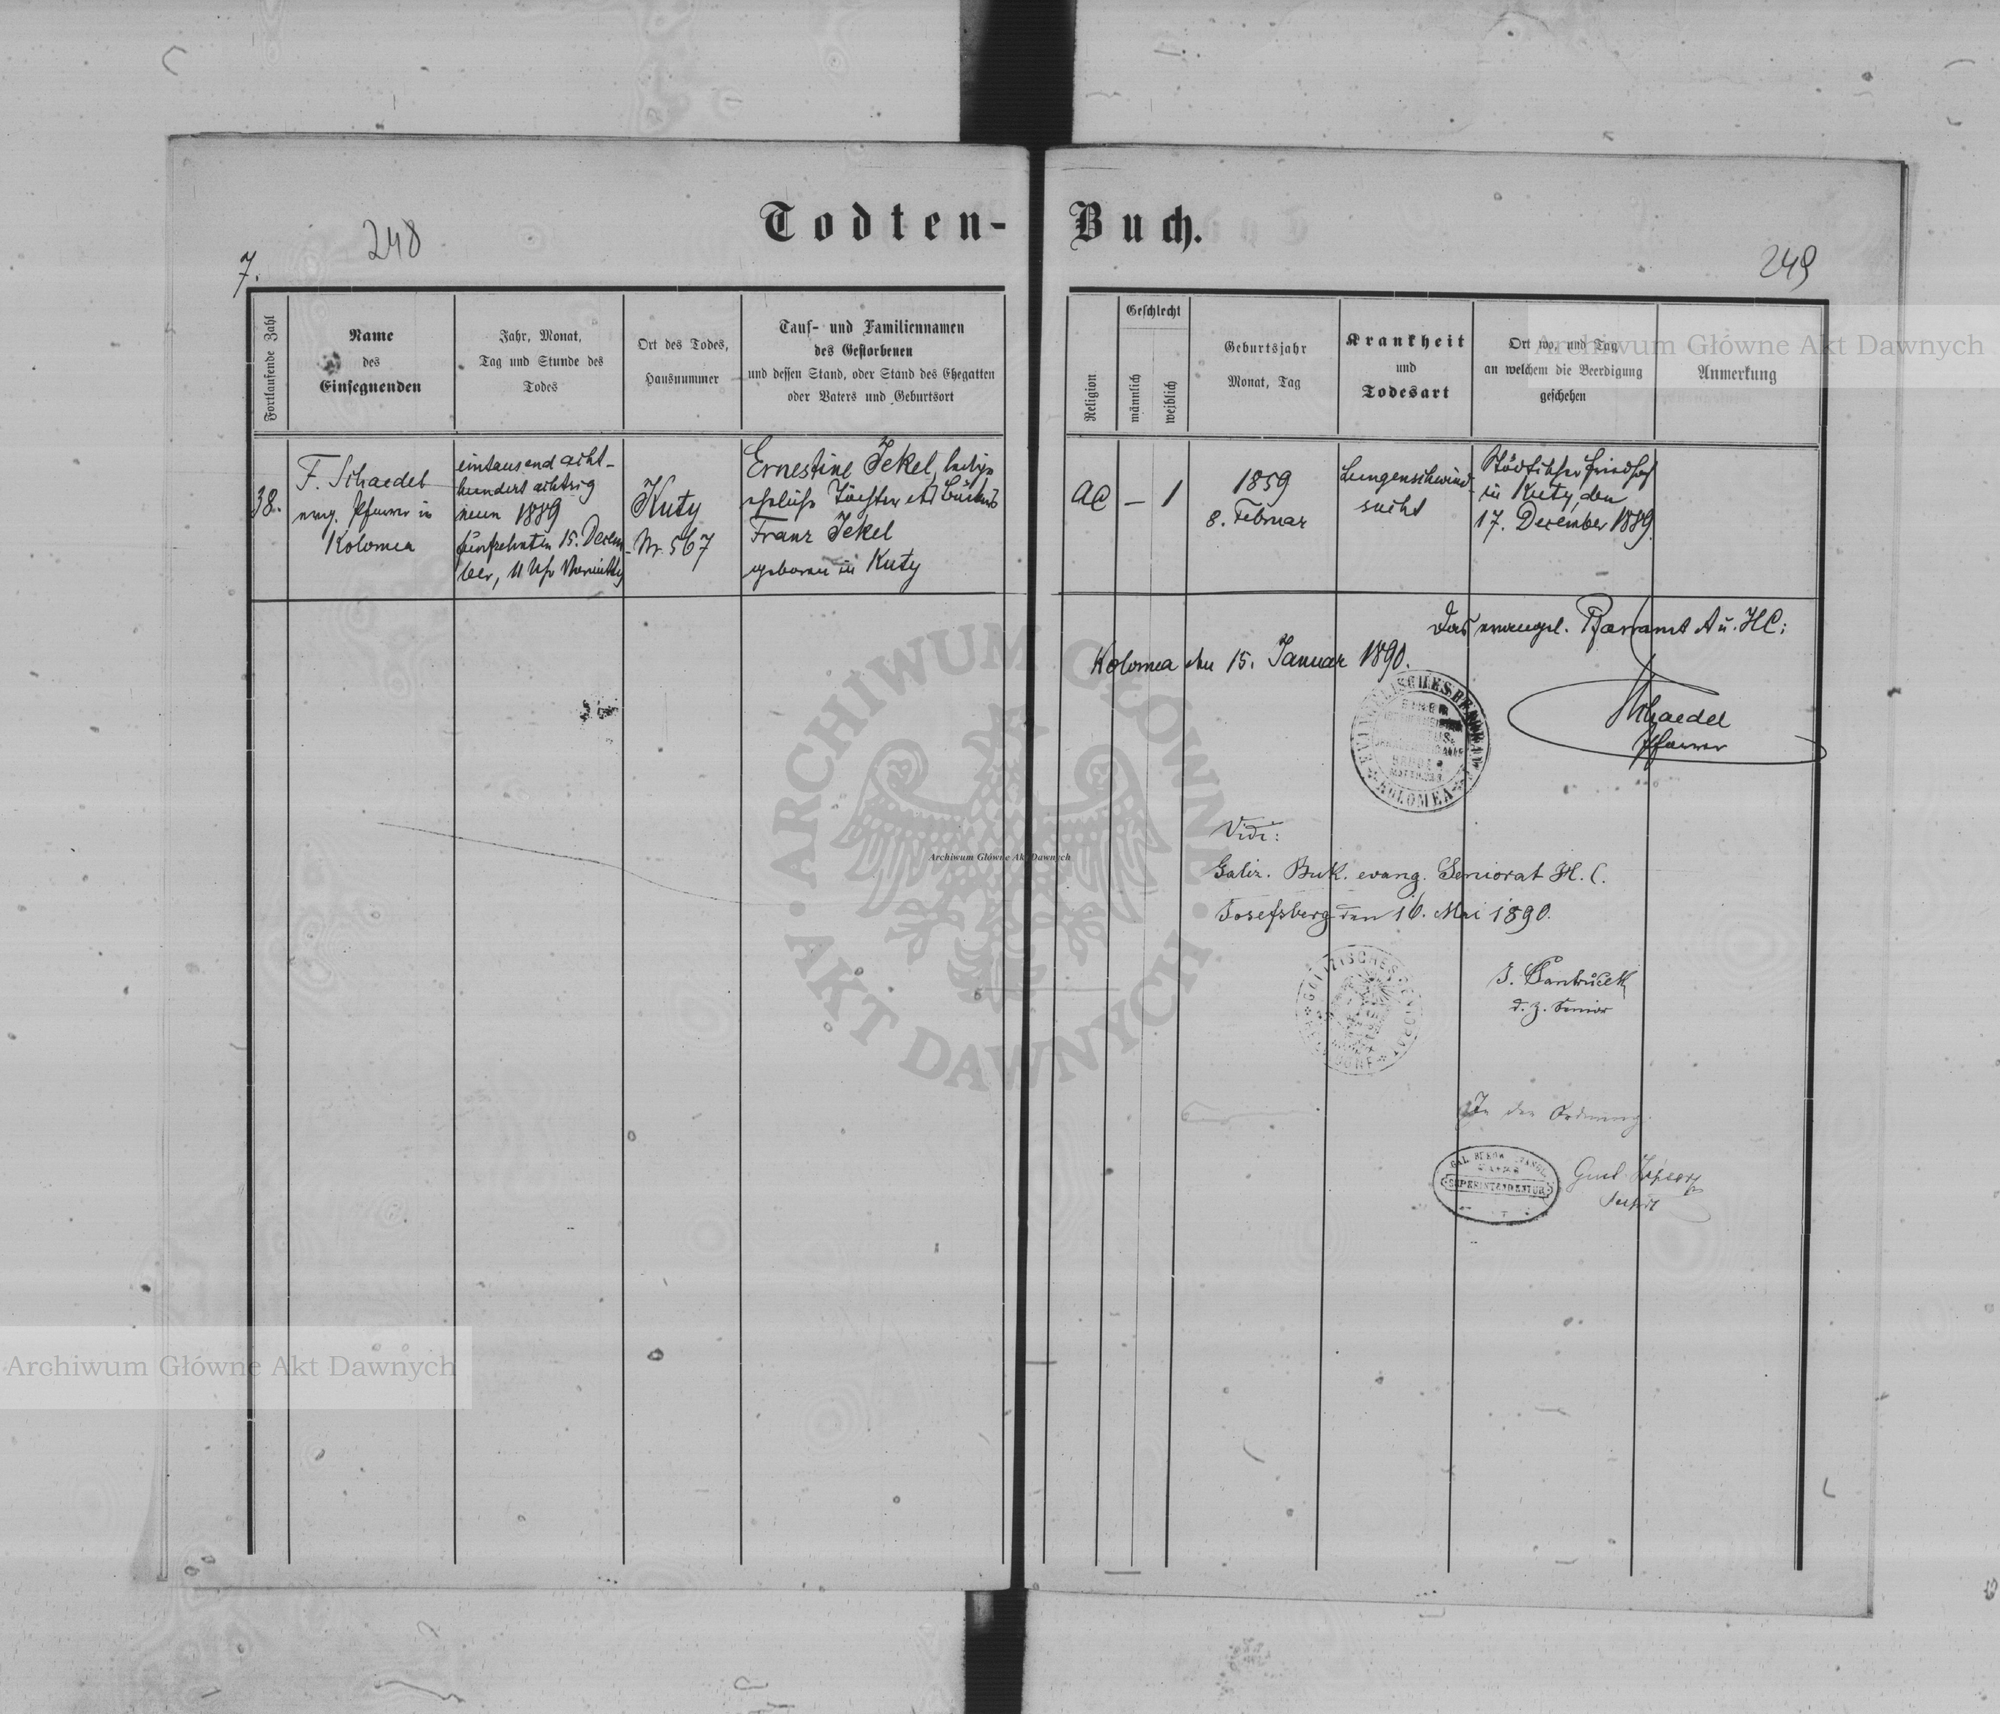 Todten- Buch.
248
249
7.
Fortlaufende Zahl
Name
des
Einsegnenden
Jahr, Monat,
Tag und Stunde des
Todes
Ort des Todes,
Hausnummer
Tauf- und Familiennamen
des Gestorbenen
und dessen Stand, oder Stand des Ehegatten
oder Vaters und Geburtsort
Religion
Geschlecht
männlich
weiblich
Geburtsjahr
Monat, Tag
Krankheit
und
Todesart
Ort wo, und Tag
an welchem die Beerdigung
geschehen
Anmerkung
38.
F. Schaedel
evang. Pfarrer in
Kolomea
eintausend acht-
hundert achtzig
neun 1889
fünfzehnten 15. Decem-
ber, 11 Uhr Vormittag
Kuty
Nr. 567
Ernestine Jekel, ledige
eheliche Tochter des
Franz Jekel
geboren in Kuty
AC
—
1
1859
8. Februar
Lungenschwind-
sucht
Städtischer Friedhof
in Kuty, den
17. December 1889.
Das evangel. Pfarramt A u. HC:
Kolomea den 15. Januar 1890.
Schaedel
Pfarrer
KOLOMEA
Vidi:
Galiz. Buk. evang. Seniorat H. C.
Josefsberg den 16. Mai 1890.
d. z. Senior
GALIZISCHES SENIORAT
In der Ordnung.
SUPERINTENDENTUR
Archiwum Główne Akt Dawnych
ARCHIWUM GŁÓWNE
AKT DAWNYCH
Archiwum Główne Akt Dawnych
Archiwum Główne Akt Dawnych